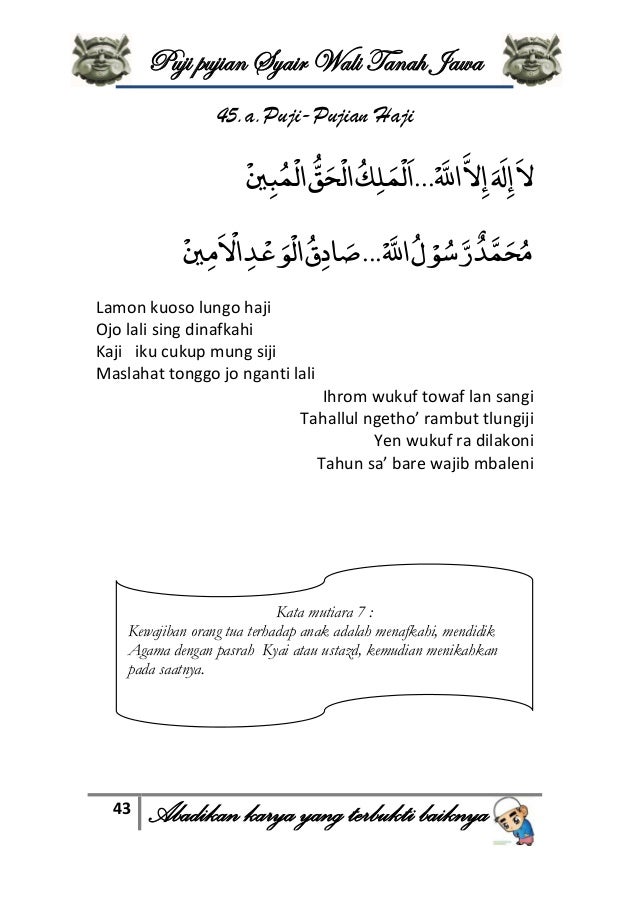 Puji pujian Syair Wali Tanah Jawa
45.a.Puji-Pujian Haji
لَا إِلَهَ إِلَّا اللهْ...اَلْمَلِكُ الْحَقُّ الْمُبِيْنْ
مُحَمَّدٌ رَّسُوْلُ اللهْ...صَادِقُ الْوَعْدِ الْاَمِيْنْ
Lamon kuoso lungo haji
Ojo lali sing dinafkahi
Kaji iku cukup mung siji
Maslahat tonggo jo nganti lali
Ihrom wukuf towaf lan sangi
Tahallul ngetho’ rambut tlungiji
Yen wukuf ra dilakoni
Tahun sa’ bare wajib mbaleni
Kata mutiara 7 :
Kewajiban orang tua terhadap anak adalah menafkahi, mendidik
Agama dengan pasrah Kyai atau ustazd, kemudian menikahkan
pada saatnya.
43 Abadikan karya yang terbukti baiknya